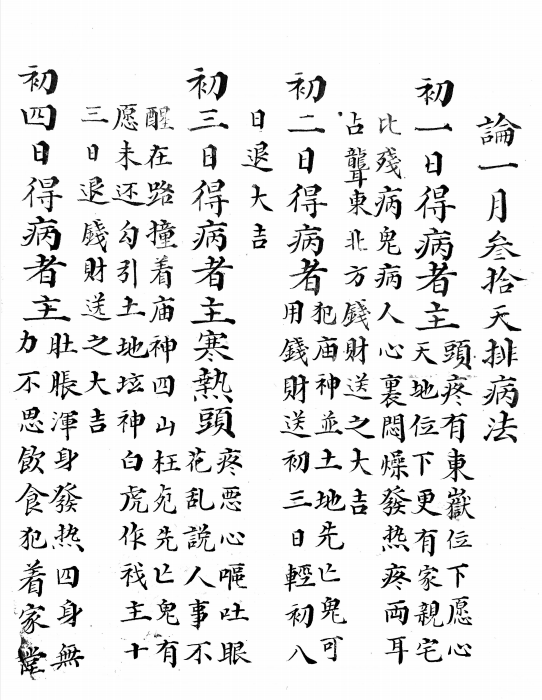 論一月叁拾天排病法
初一日得病者主頭疼有東嶽位下愿心
天地位下更有家親宅
比殘病鬼病人心裏悶燥發热疼両耳
占聾東北方錢財送之大吉
初二日得病者犯庙神並土地先亡鬼可
用錢財送初三日輕初八
日退大吉
初三日得病者主寒熱頭疼惡心嘔吐眼
花乱説人事不
醒在路撞着庙神四山枉死先亡鬼有
愿未还勾引土地坛神白虎作祅主十
三日退錢財送之大吉
初四日得病者主肚脹渾身發热四身無
力不思飲食犯着家堂